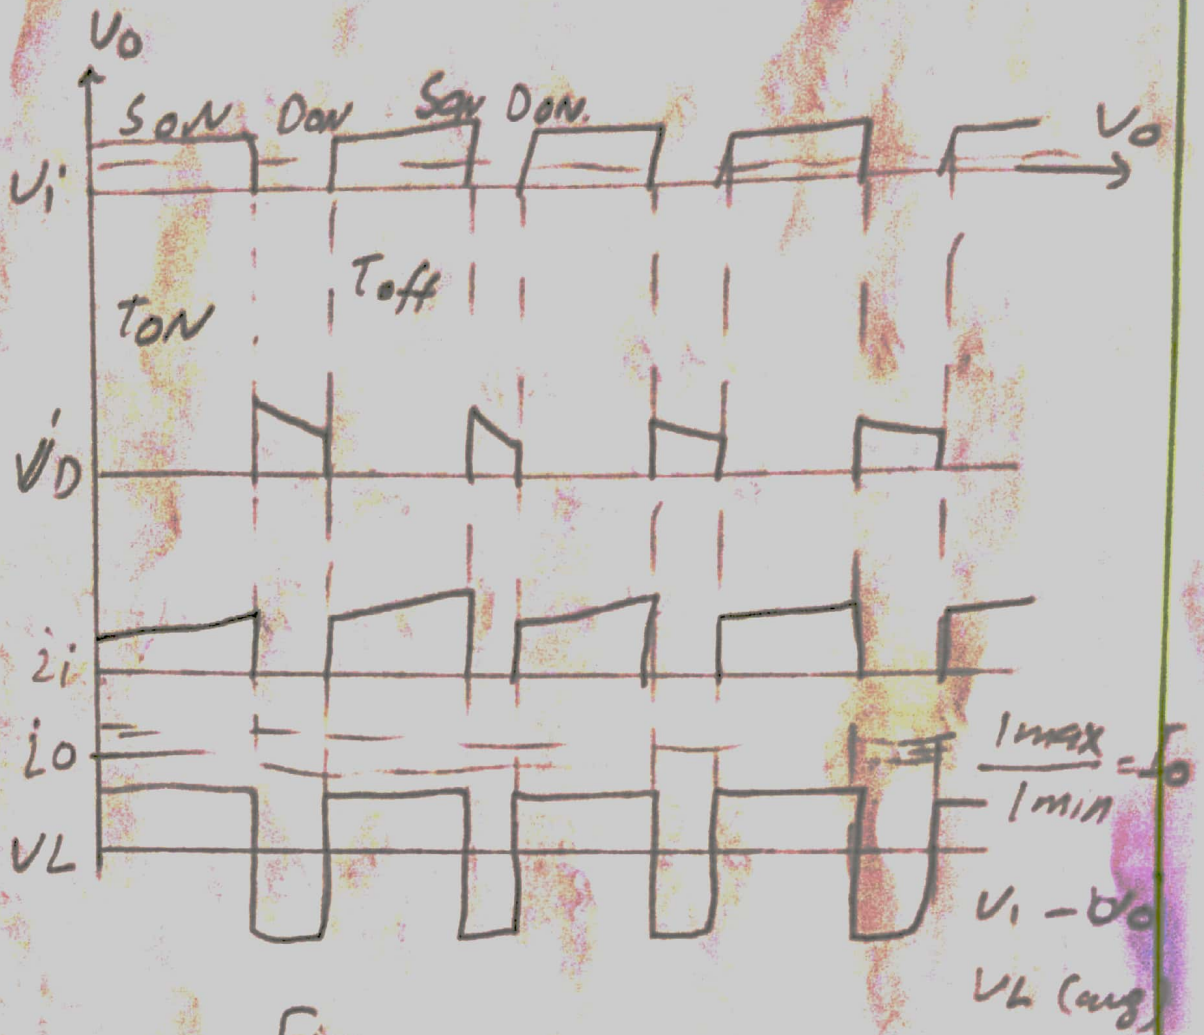 Vo
SON DON SON DON.
Vo
Vi
Toff
TON
iD
ii
io
Imax
Imin
= Io
VL
Vi - Vo
VL (avg)